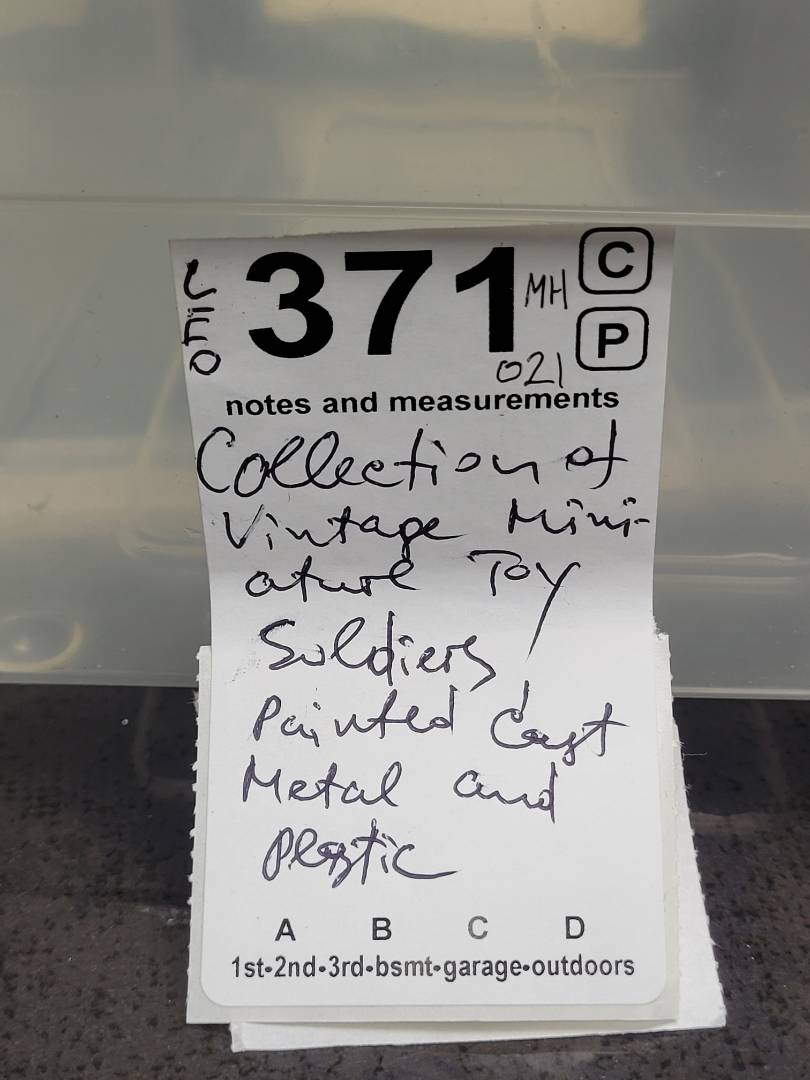 LEO
371
MH
C
P
021
notes and measurements
Collection of
Vintage Mini-
ature Toy
Soldiers,
Painted Cast
Metal and
Plastic
A B C D
1st-2nd-3rd-bsmt-garage-outdoors